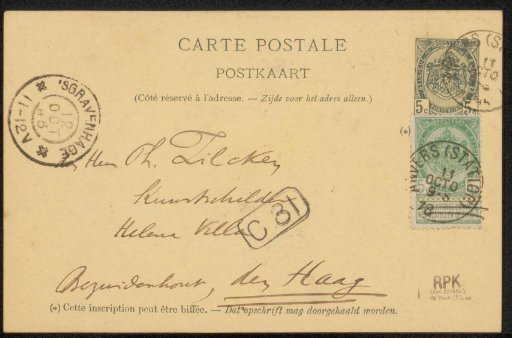 CARTE POSTALE
POSTKAART
(Côté réservé à l'adresse. — Zijde voor het adres alleen.)
5c
'SGRAVENHAGE
12
OCT
96
11-12V
ANVERS (STATION)
11
OCTO
(*)
Ph. Zilcken
Kunstschilder
Helena Villa
C 81
Bezuidenhout, den Haag
(*) Cette inscription peut être biffée. — Dat opschrift mag doorgehaald worden.
RPK